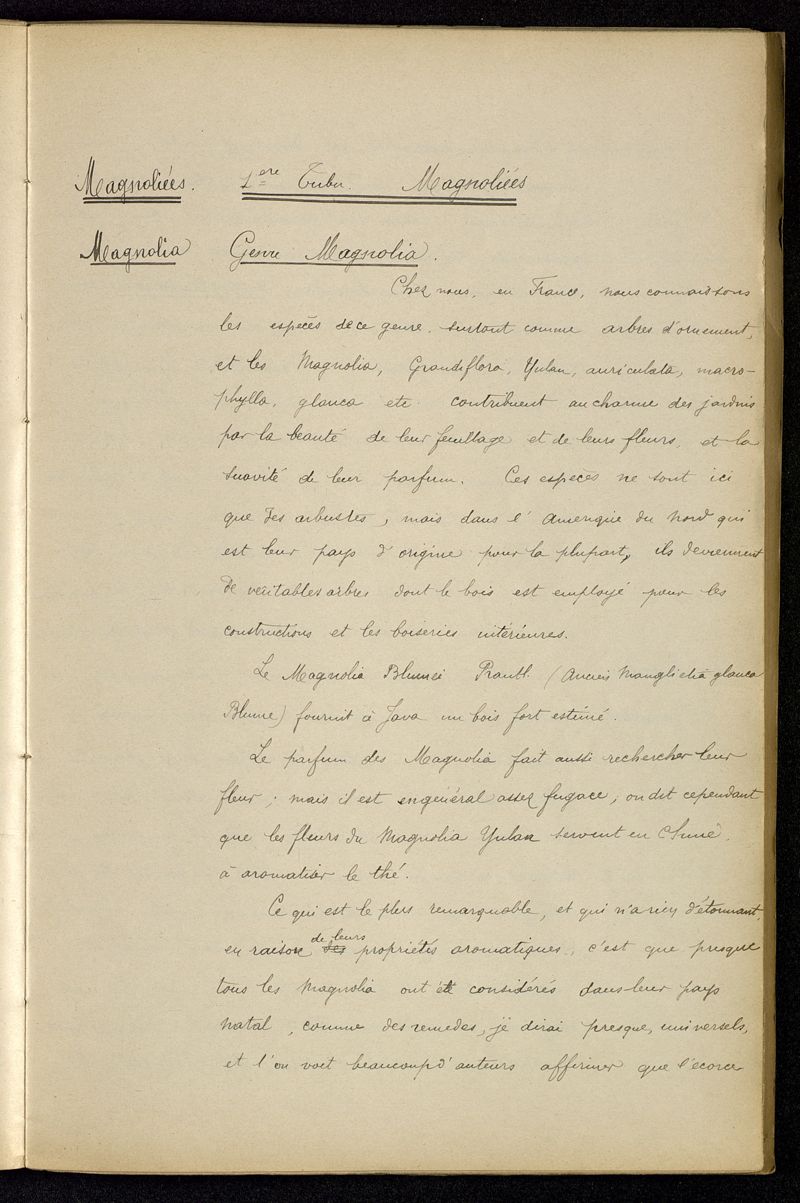 Magnoliées. 1ere Tribu. Magnoliées
Magnolia Genre Magnolia.
Chez nous, en France, nous connaissons
les espèces de ce genre surtout comme arbres d'ornement,
et les Magnolia, Grandiflora, Yulan, auriculata, macro-
phylla, glauca etc contribuent au charme des jardins
par la beauté de leur feuillage et de leurs fleurs, et la
suavité de leur parfum. Ces espèces ne sont ici
que des arbustes, mais dans l'Amérique du Nord qui
est leur pays d'origine pour la plupart, ils deviennent
de véritables arbres dont le bois est employé pour les
constructions et les boiseries intérieures.
Le Magnolia Blumei Prantl. (Ancien Manglietia glauca
Blume) fournit à Java un bois fort estimé.
Le parfum des Magnolia fait aussi rechercher leur
fleur; mais il est en général assez fugace; on dit cependant
que les fleurs du Magnolia Yulan servent en Chine
à aromatiser le thé.
Ce qui est le plus remarquable, et qui n'a rien d'étonnant,
en raison de leurs propriétés aromatiques, c'est que presque
tous les Magnolia ont été considérés dans leur pays
natal, comme des remedes, je dirai presque, universels,
et l'on voit beaucoup d'auteurs affirmer que l'écorce